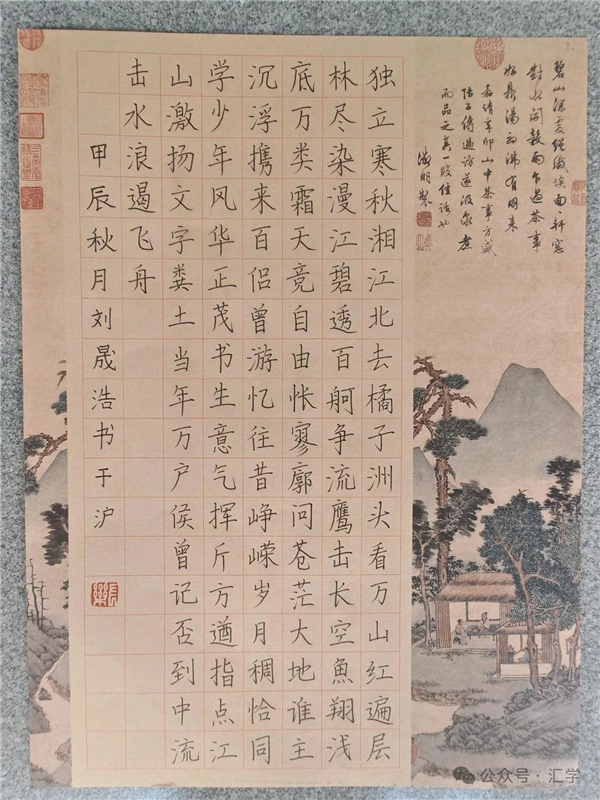 碧山深處絕纖埃面々軒窗
對水開穀雨乍過茶事
好鼎湯初沸有朋来
嘉靖辛卯山中茶事方盛
陸子傅過訪遂汲泉煮
而品之真一段佳話也
徵明製
独立寒秋湘江北去橘子洲头看万山红遍层
林尽染漫江碧透百舸争流鹰击长空魚翔浅
底万类霜天竞自由怅寥廓问苍茫大地谁主
沉浮携来百侣曾游忆往昔峥嵘岁月稠恰同
学少年风华正茂书生意气挥斥方遒指点江
山激扬文字粪土当年万户侯曾记否到中流
击水浪遏飞舟
甲辰秋月刘晟浩书于沪
長樂
公众号·汇学